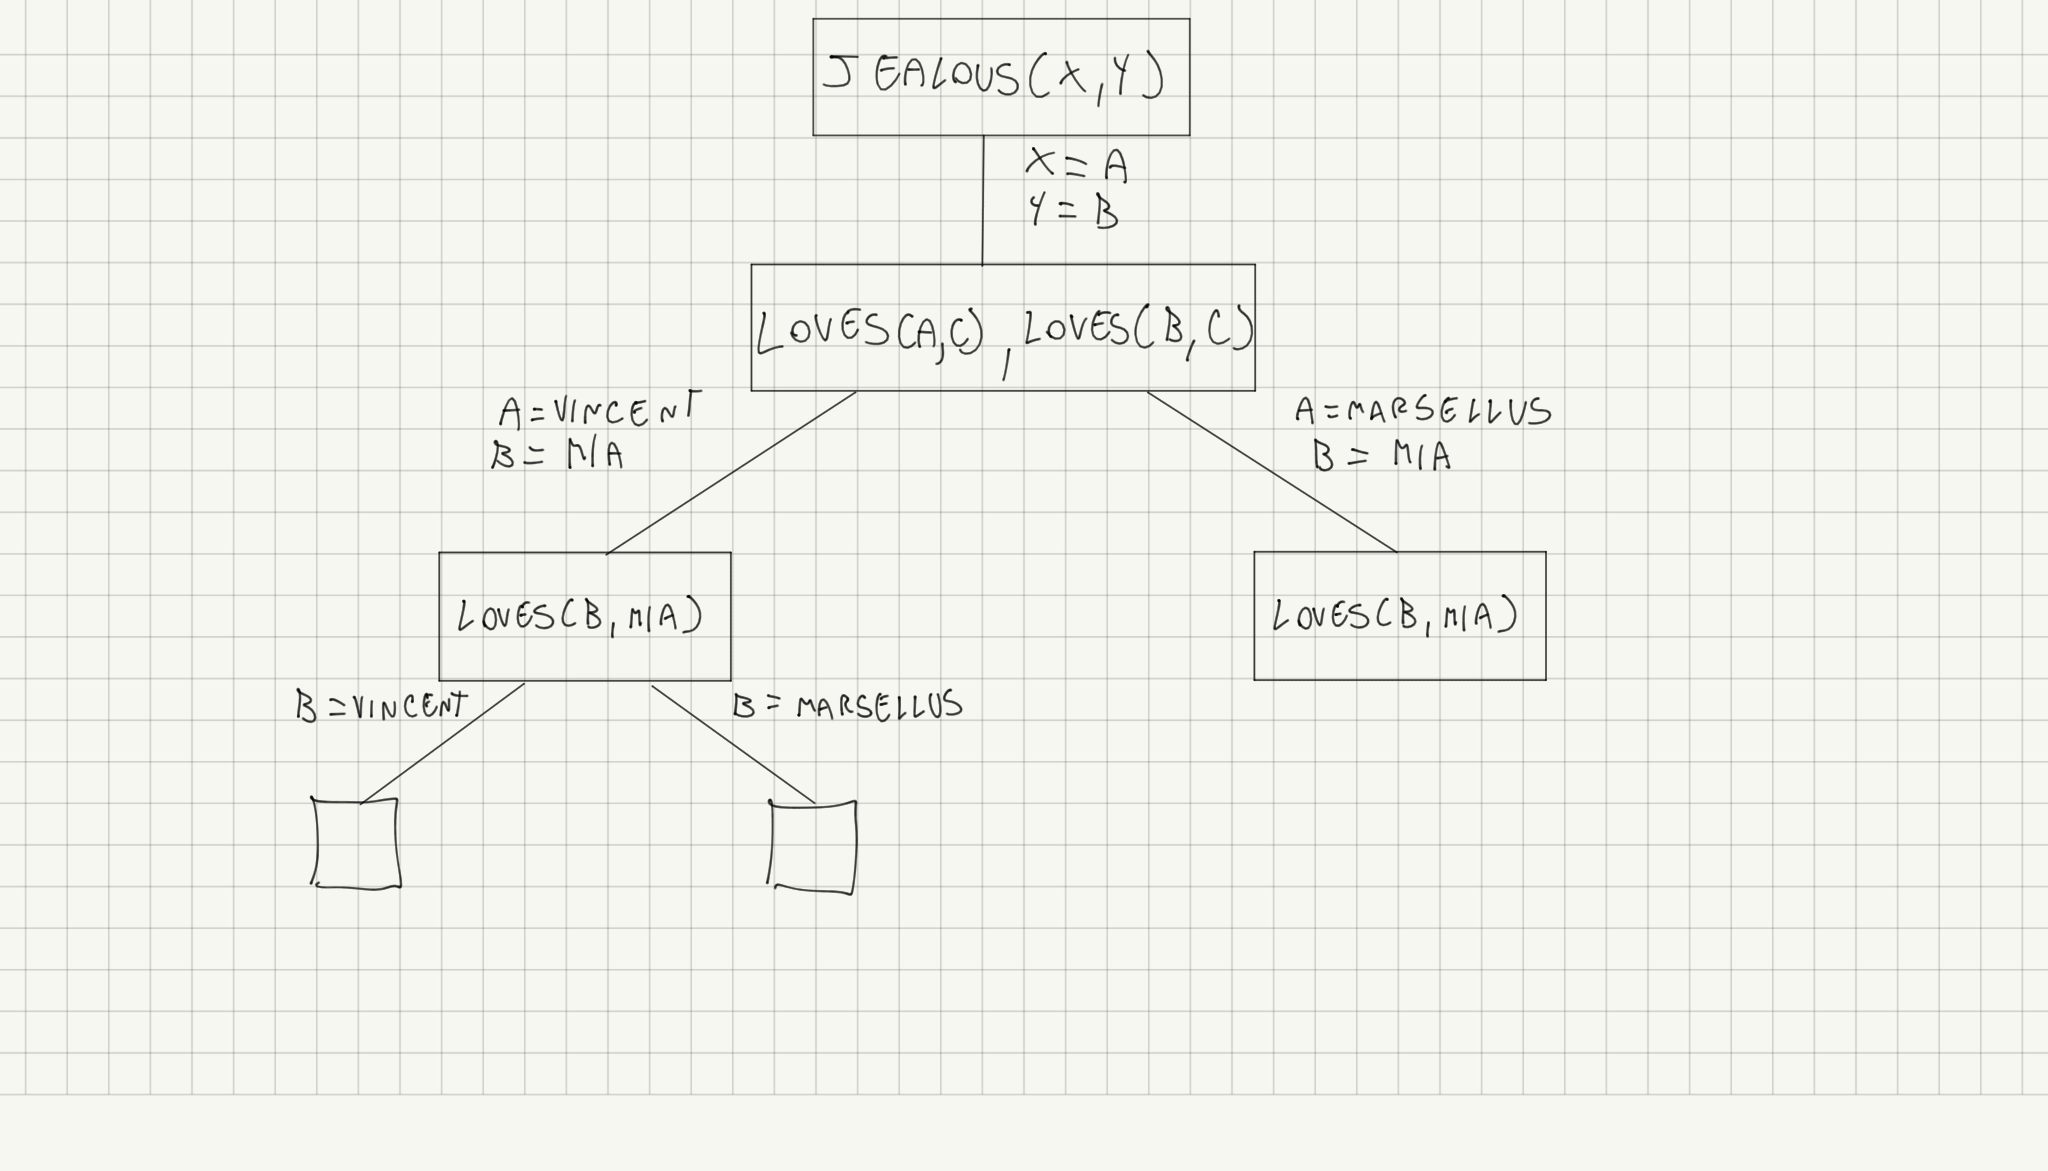 JEALOUS(X,Y)
X = A
Y = B
LOVES(A,C), LOVES(B,C)
A = VINCENT
B = MIA
A = MARSELLUS
B = MIA
LOVES(B, MIA)
LOVES(B, MIA)
B = VINCENT
B = MARSELLUS